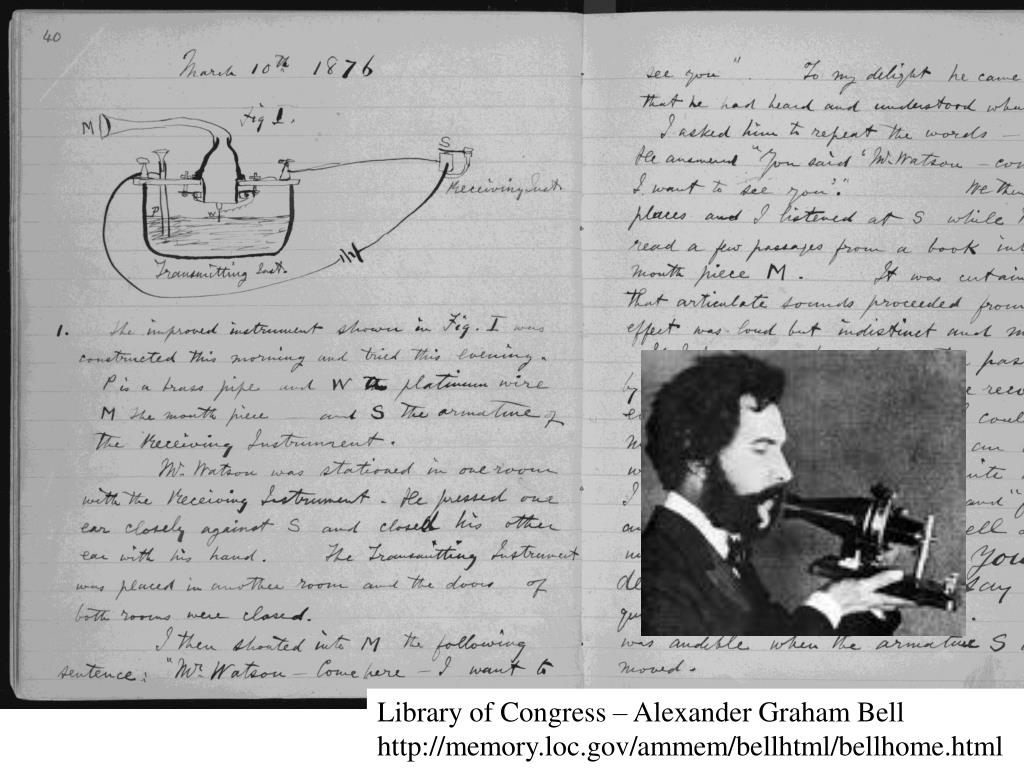 40
March 10th 1876
Fig I.
M
S
Receiving Inst.
P
W
Transmitting Inst.
1. The improved instrument shown in Fig. I was
constructed this morning and tried this evening.
P is a brass pipe and W the platinum wire
M the mouth piece and S the armature of
the Receiving Instrument.
Mr. Watson was stationed in one room
with the Receiving Instrument. He pressed one
ear closely against S and closed his other
ear with his hand. The Transmitting Instrument
was placed in another room and the doors of
both rooms were closed.
I then shouted into M the following
sentence: "Mr. Watson – Come here – I want to
see you". To my delight he came
that he had heard and understood what
I asked him to repeat the words –
He answered "You said 'Mr. Watson – come
I want to see you'."
places and I listened at S while
read a few passages from a book
mouth piece M. It was certain
that articulate sounds proceeded from
effect was loud but indistinct and
by
You
say
was audible when the armature S
moved.
Library of Congress – Alexander Graham Bell
http://memory.loc.gov/ammem/bellhtml/bellhome.html